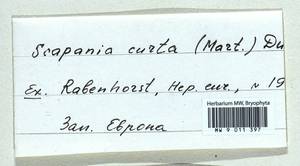 Scapania curta (Mart.) Du
Ex. Rabenhorst, Hep. eur., N 19
Зап. Европа
Herbarium MW, Bryophyta
MW 9 011 397